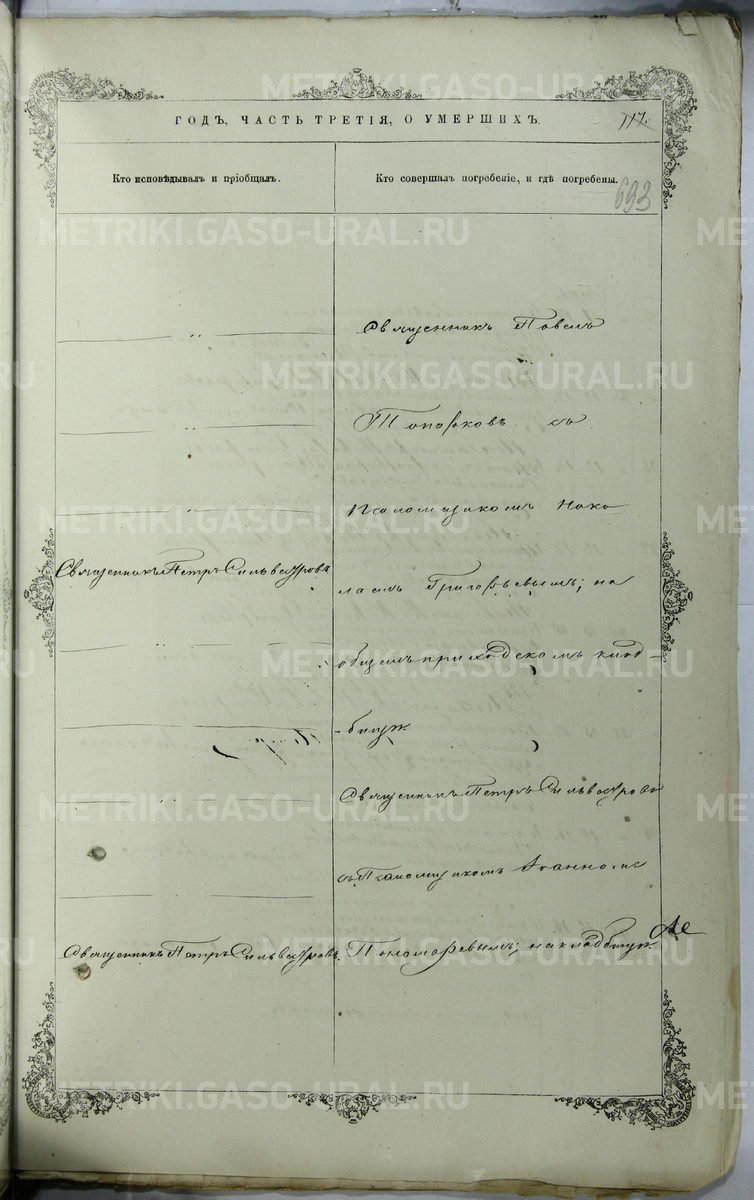 ГОДЪ, ЧАСТЬ ТРЕТІЯ, О УМЕРШИХЪ.
117.
Кто исповѣдывалъ и пріобщалъ.
Кто совершалъ погребеніе, и гдѣ погребены.
693
Священникъ Павелъ
Топорковъ со
Псаломщикомъ Нико
Священникъ Петръ Сильвестровъ
лаемъ Григорьевымъ; на
общемъ приходскомъ клад-
-бищѣ
Священникъ Петръ Сильвестровъ
съ Псаломщикомъ Іоанномъ
Священникъ Петръ Сильвестровъ.
Пономаревымъ; на кладбищѣ
METRIKI.GASO-URAL.RU